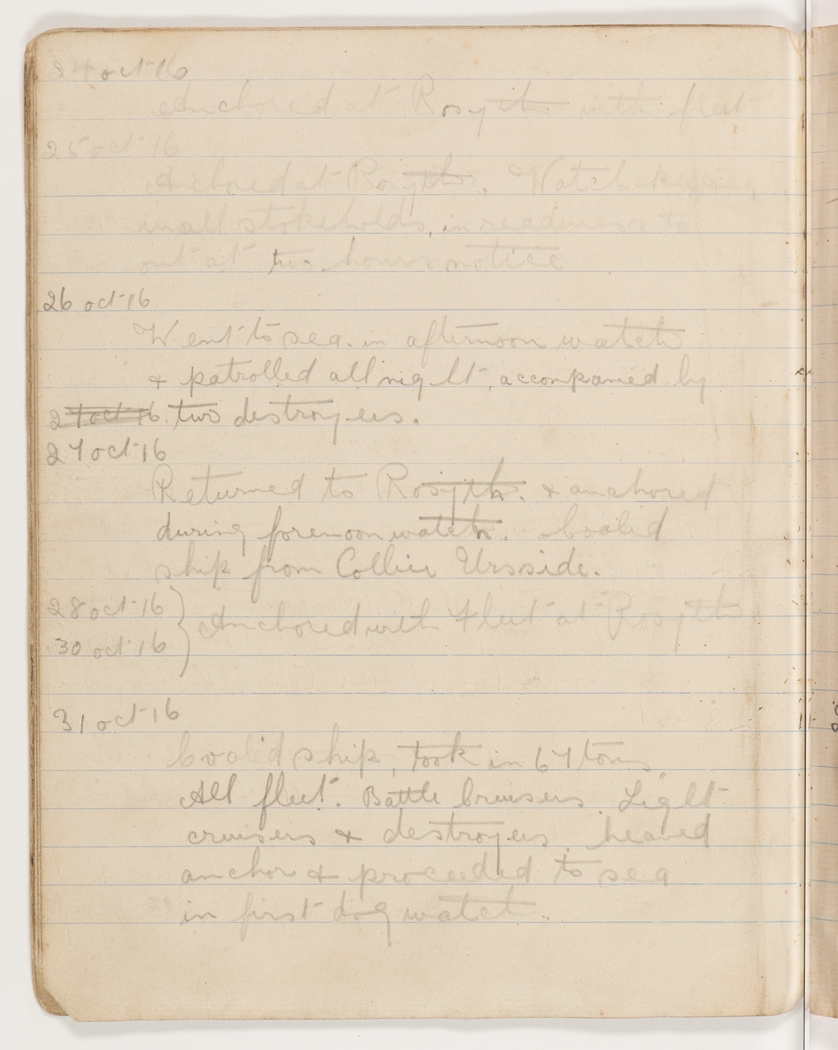 24 oct 16
Anchored at Rosyth with fleet
25 oct 16
Anchored at Rosyth. Watch keeping
in all stokeholds, in readiness to
out at two hours notice
26 oct 16
Went to sea in afternoon watch
& patrolled all night, accompanied by
27 oct 16 two destroyers.
27 oct 16
Returned to Rosyth. & anchored
during forenoon watch. Coaled
ship from Collier Ursside.
28 oct 16
Anchored with Fleet at Rosyth
30 oct 16
31 oct 16
Coaled ship, took in 67 tons
All fleet. Battle Cruisers Light
cruisers & destroyers heaved
anchor & proceeded to sea
in first dog watch.